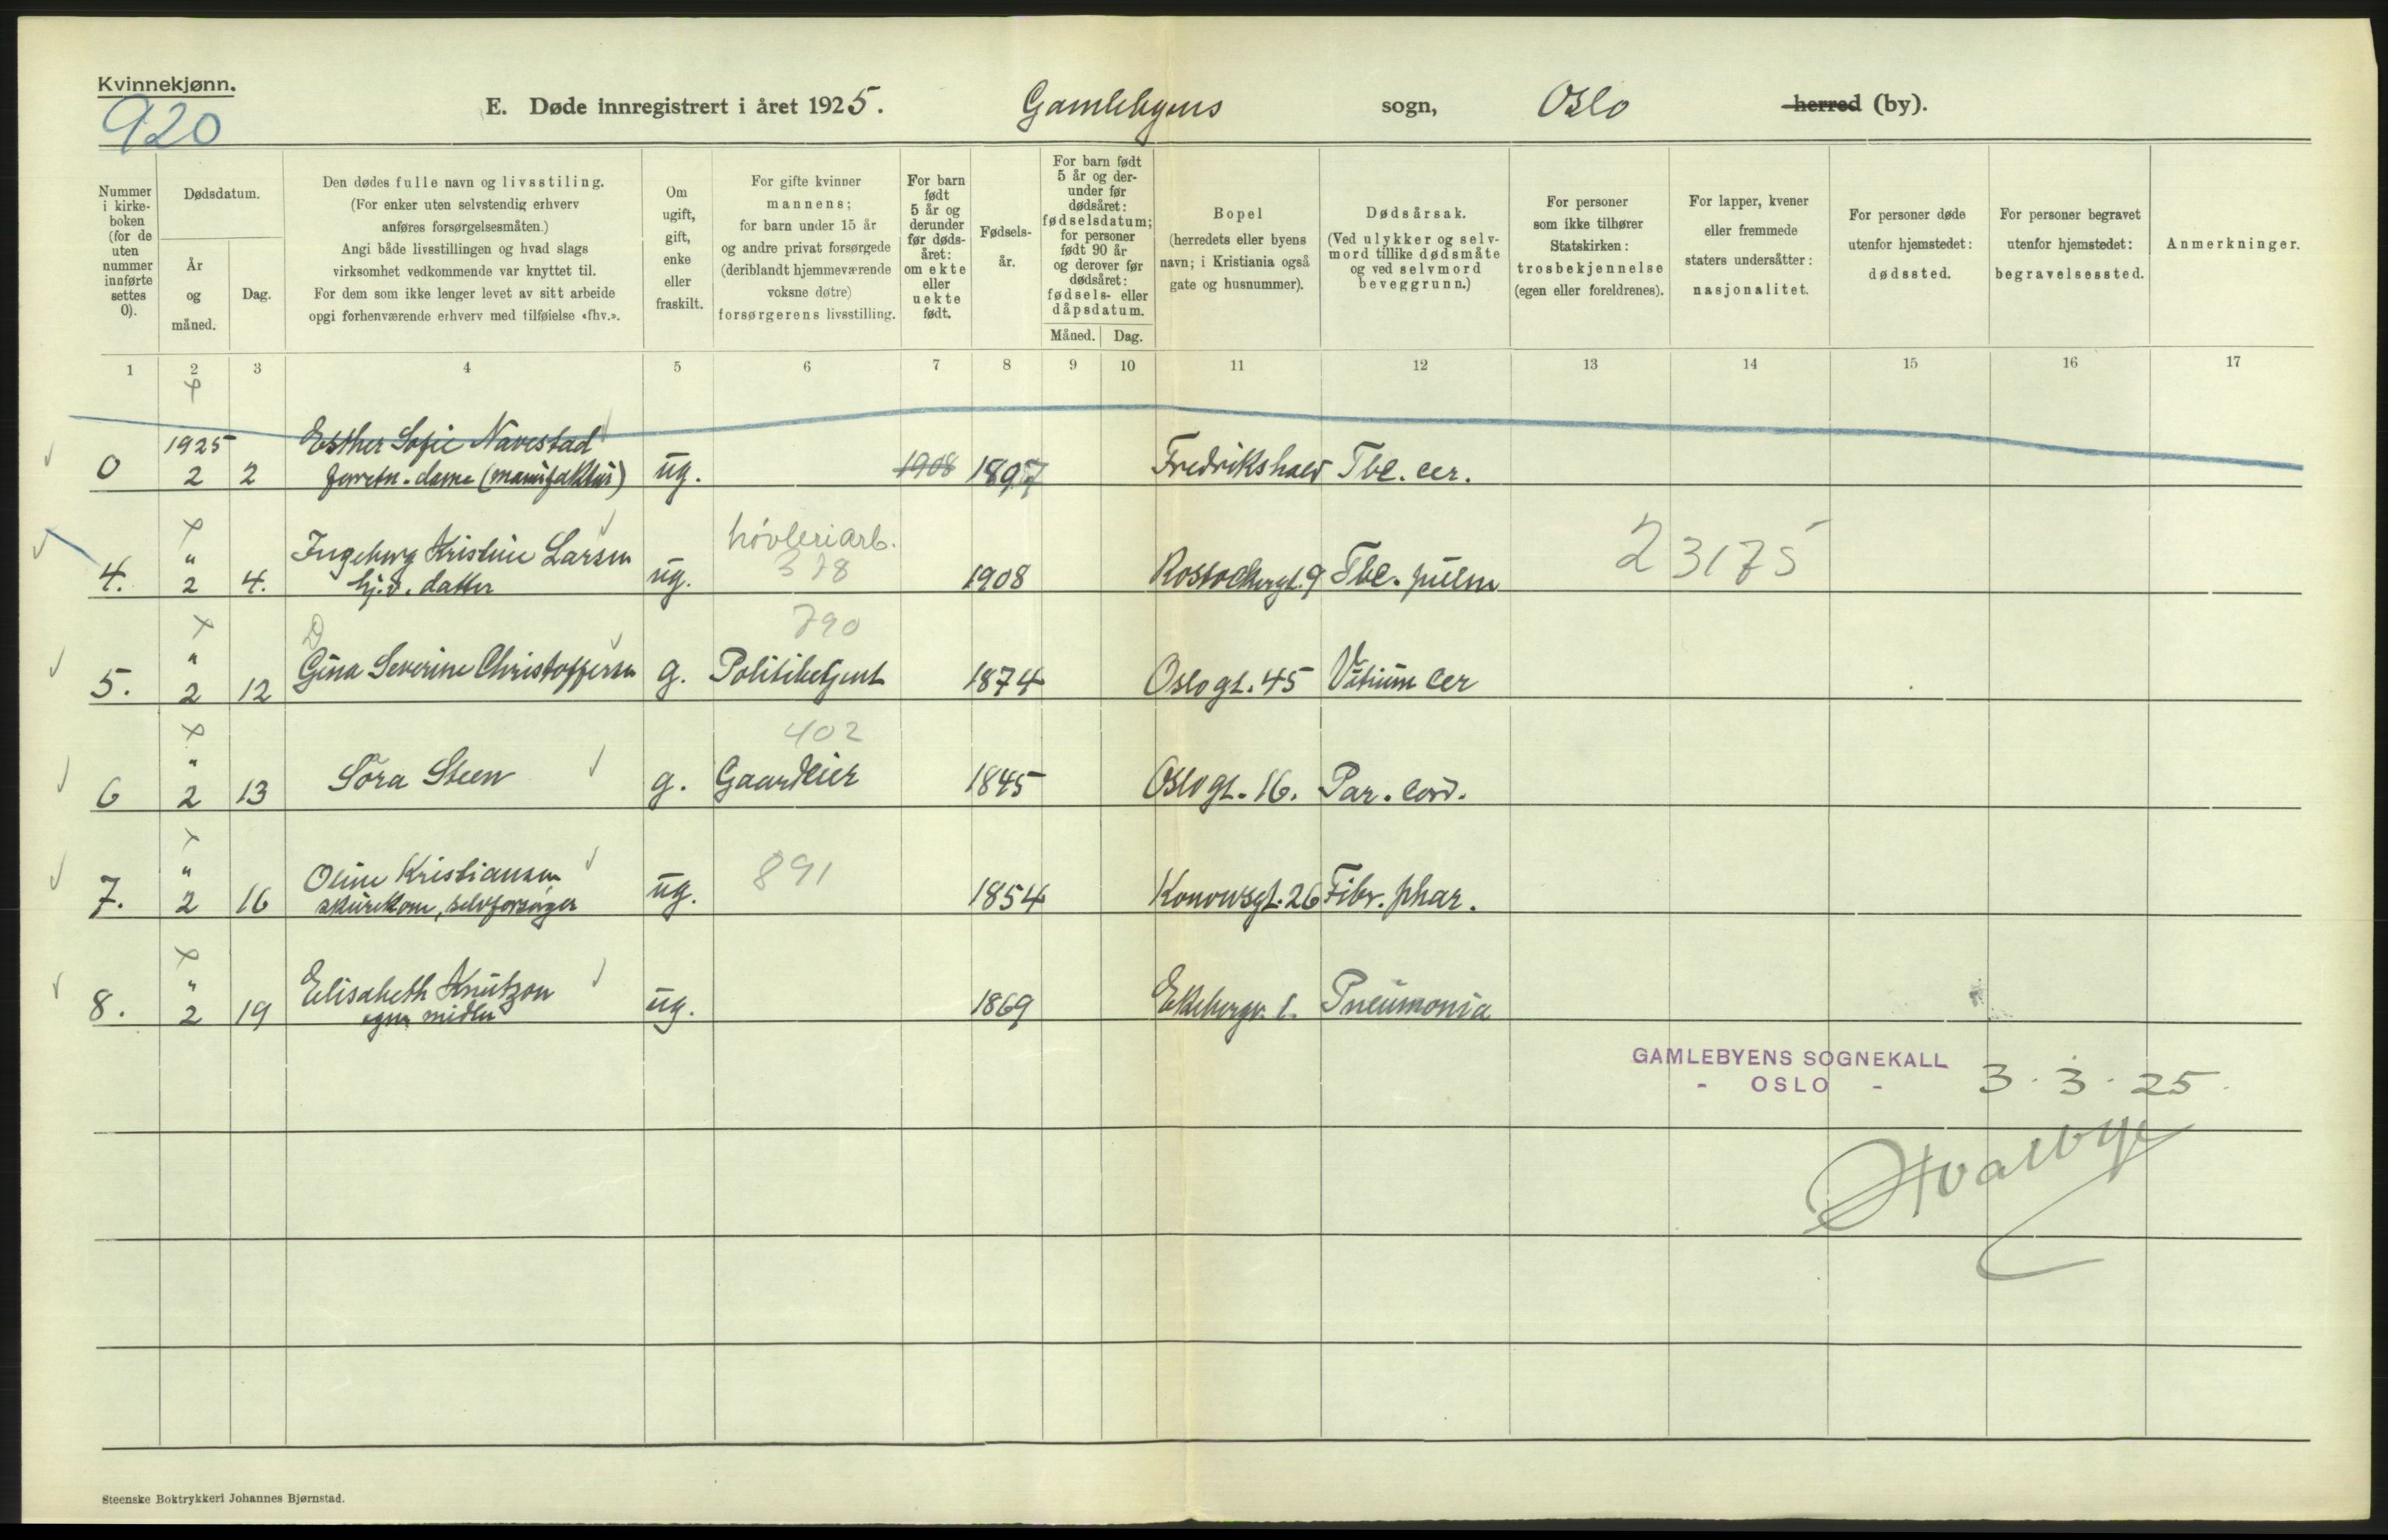 Kvinnekjønn.
920
E. Døde innregistrert i året 1925. Gamlebyens sogn, Oslo herred (by).
Nummer i kirke-boken (for de uten nummer innførte settes 0).
Dødsdatum.
År og måned.
Dag.
Den dødes fulle navn og livsstiling.
(For enker uten selvstendig erhverv
anføres forsørgelsesmåten.)
Angi både livsstillingen og hvad slags
virksomhet vedkommende var knyttet til.
For dem som ikke lenger levet av sitt arbeide
opgi forhenværende erhverv med tilføielse «fhv.».
Om ugift, gift, enke eller fraskilt.
For gifte kvinner
mannens;
for barn under 15 år
og andre privat forsørgede
(deriblandt hjemmeværende
voksne døtre)
forsørgerens livsstilling.
For barn født 5 år og derunder før døds-året: om ekte eller uekte født.
Fødsels-år.
For barn født
5 år og der-
under før
dødsåret:
fødselsdatum;
for personer
født 90 år
og derover før
dødsåret:
fødsels- eller
dåpsdatum.
Måned. Dag.
Bopel
(herredets eller byens
navn; i Kristiania også
gate og husnummer).
Dødsårsak.
(Ved ulykker og selv-
mord tillike dødsmåte
og ved selvmord
beveggrunn.)
For personer
som ikke tilhører
Statskirken:
trosbekjennelse
(egen eller foreldrenes).
For lapper, kvener
eller fremmede
staters undersåtter:
nasjonalitet.
For personer døde
utenfor hjemstedet:
dødssted.
For personer begravet
utenfor hjemstedet:
begravelsessted.
Anmerkninger.
1 2 3 4 5 6 7 8 9 10 11 12 13 14 15 16 17
1925 Esther Sofie Navestad
0 2 2 forretn.dame (manufaktur) ug. 1908 1897 Fredrikshald Tbc. cer.
" Ingeborg Kristine Larsen høvleriarb.
4. 2 4. hj.v. datter ug. 378 1908 Rostockergt. 9 Tbc. pulm 23175
790
" D
5. 2 12 Gina Severine Christoffersen g. Politibetjent 1874 Oslogt. 45 Vitium cer
402
"
6 2 13 Sora Steen g. Gaardeier 1845 Oslogt. 16. Par. cord.
" Oline Kristiansen 891
7. 2 16 skurekone, selvforsørger ug. 1854 Konowsgt. 26 Fibr. phar.
" Elisabeth Knutzon
8. 2 19 egne midler ug. 1869 Ekebergv. 1. Pneumonia
GAMLEBYENS SOGNEKALL
- OSLO -
3.3.25.
Steenske Boktrykkeri Johannes Bjørnstad.